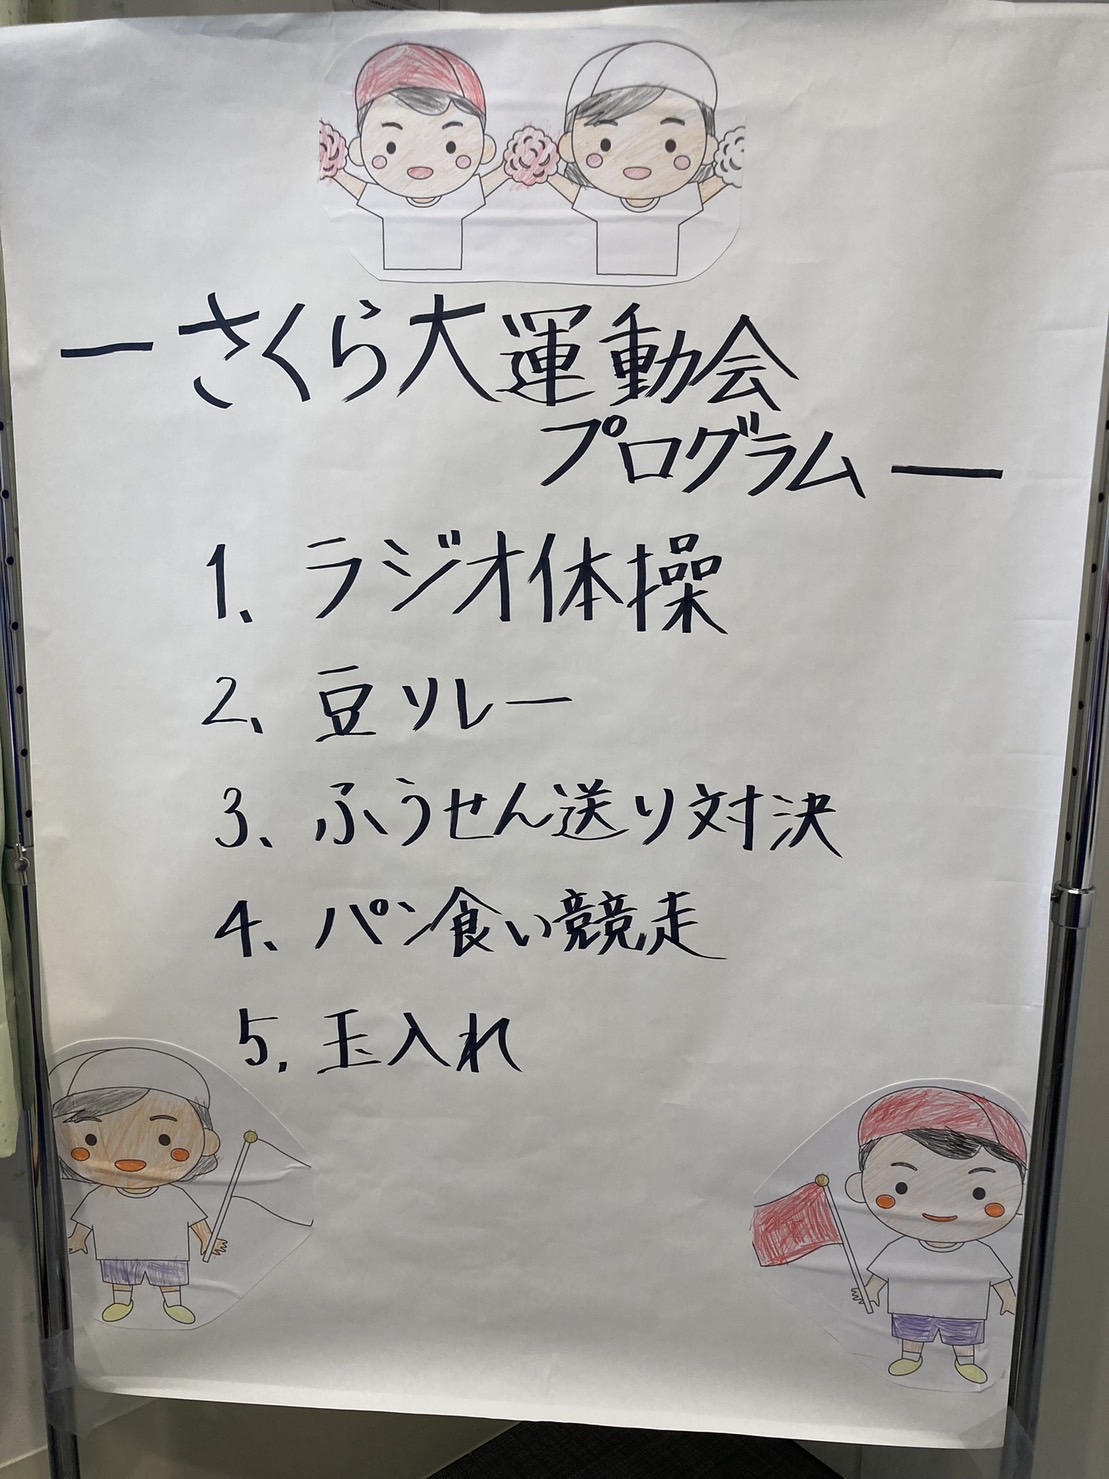 ーさくら大運動会
プログラムー
1、ラジオ体操
2、豆リレー
3、ふうせん送り対決
4、パン食い競走
5、玉入れ